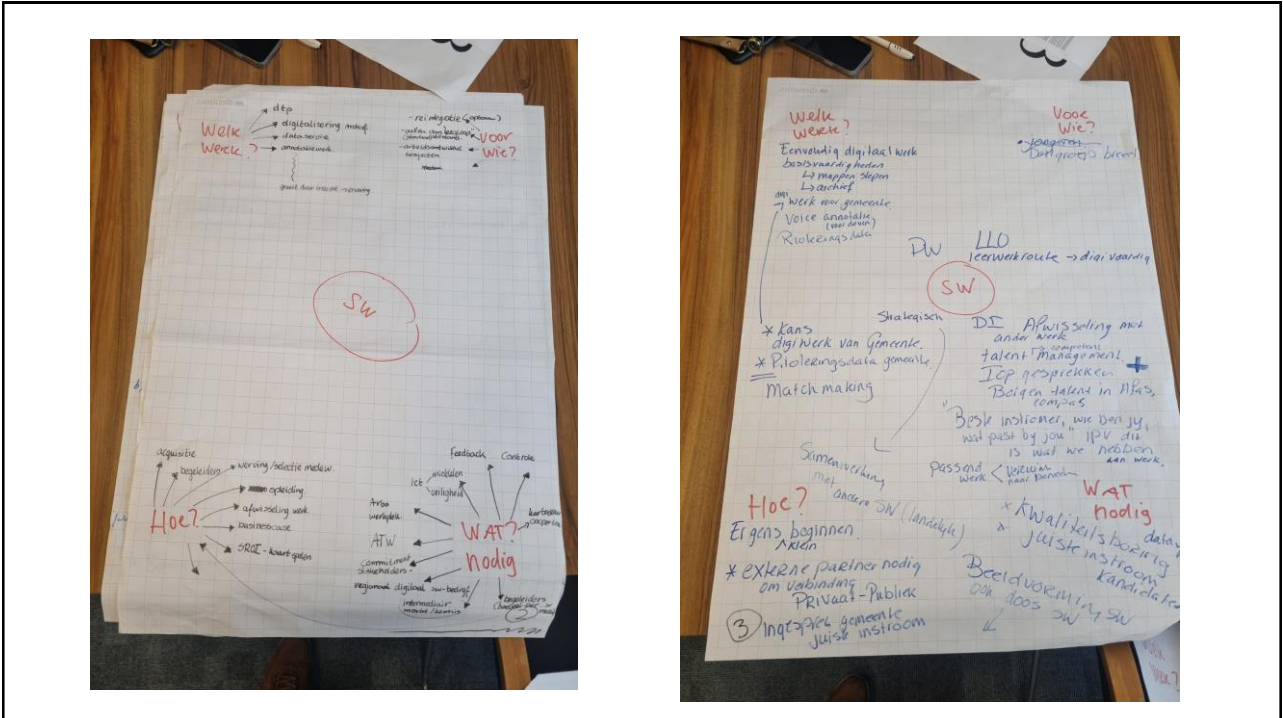 Welk
Werk?
dtp
digitalisering archief
dataservice
annotatiewerk
groeit door interesse → ervaring
- reintegratie (opstroom)
- arbeidsmatige
Voor
Wie?
SW
Hoe?
acquisitie
begeleiders
werving/selectie medew.
opleiding
afwisseling werk
businesscase
SROI - kaart spelen
WAT?
nodig
feedback
controle
ict
middelen
veiligheid
Arbo
werkplek
ATW
commitment
stakeholders
regionaal digitaal sw-bedrijf
intermediair
markt/kennis
begeleiders
2
Welk
werk?
Eenvoudig digitaal werk
basisvaardigheden
↳ mappen slepen
↳ archief
digi
→ werk voor gemeente
Voice annotatie
(voor doven)
Rioleringsdata
Voor
Wie?
• jongeren
Doelgroep breed
PW
LLO
leerwerkroute → digivaardig
SW
Strategisch
* Kans
digiwerk van Gemeente.
* Rioleringsdata gemeente.
Matchmaking
DI Afwisseling met
ander werk
competent
talent management.
Icp gesprekken +
Borgen talent in Afas,
compas
"Beste instromer, wie ben jij,
wat past bij jou" IPV dit
is wat we hebben
aan werk.
passend
werk
Samenwerking
met
andere SW (landelijk)
Hoe?
Ergens beginnen
klein
* externe partner nodig
om verbinding
Privaat-Publiek
3 Ingesprek gemeente
juiste instroom
WAT
nodig
* Kwaliteitsborging
data
* juiste instroom
kandidaten
Beeldvorming SW
ook door SW